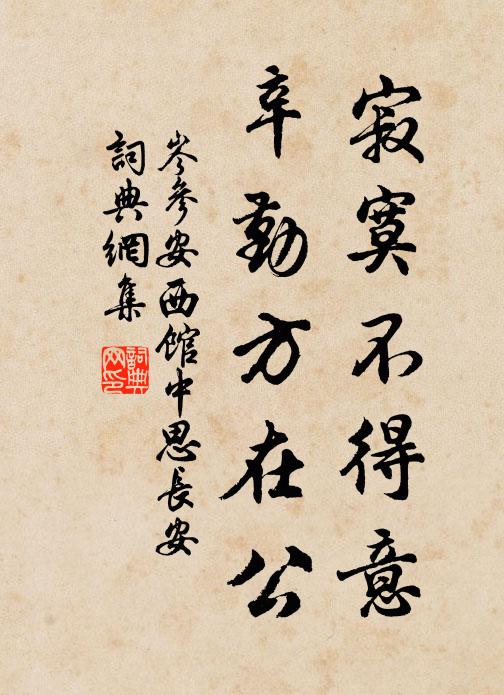 寂寞不得意
辛勤方在公
岑參安西館中思長安
詞典網集
詞典
网印